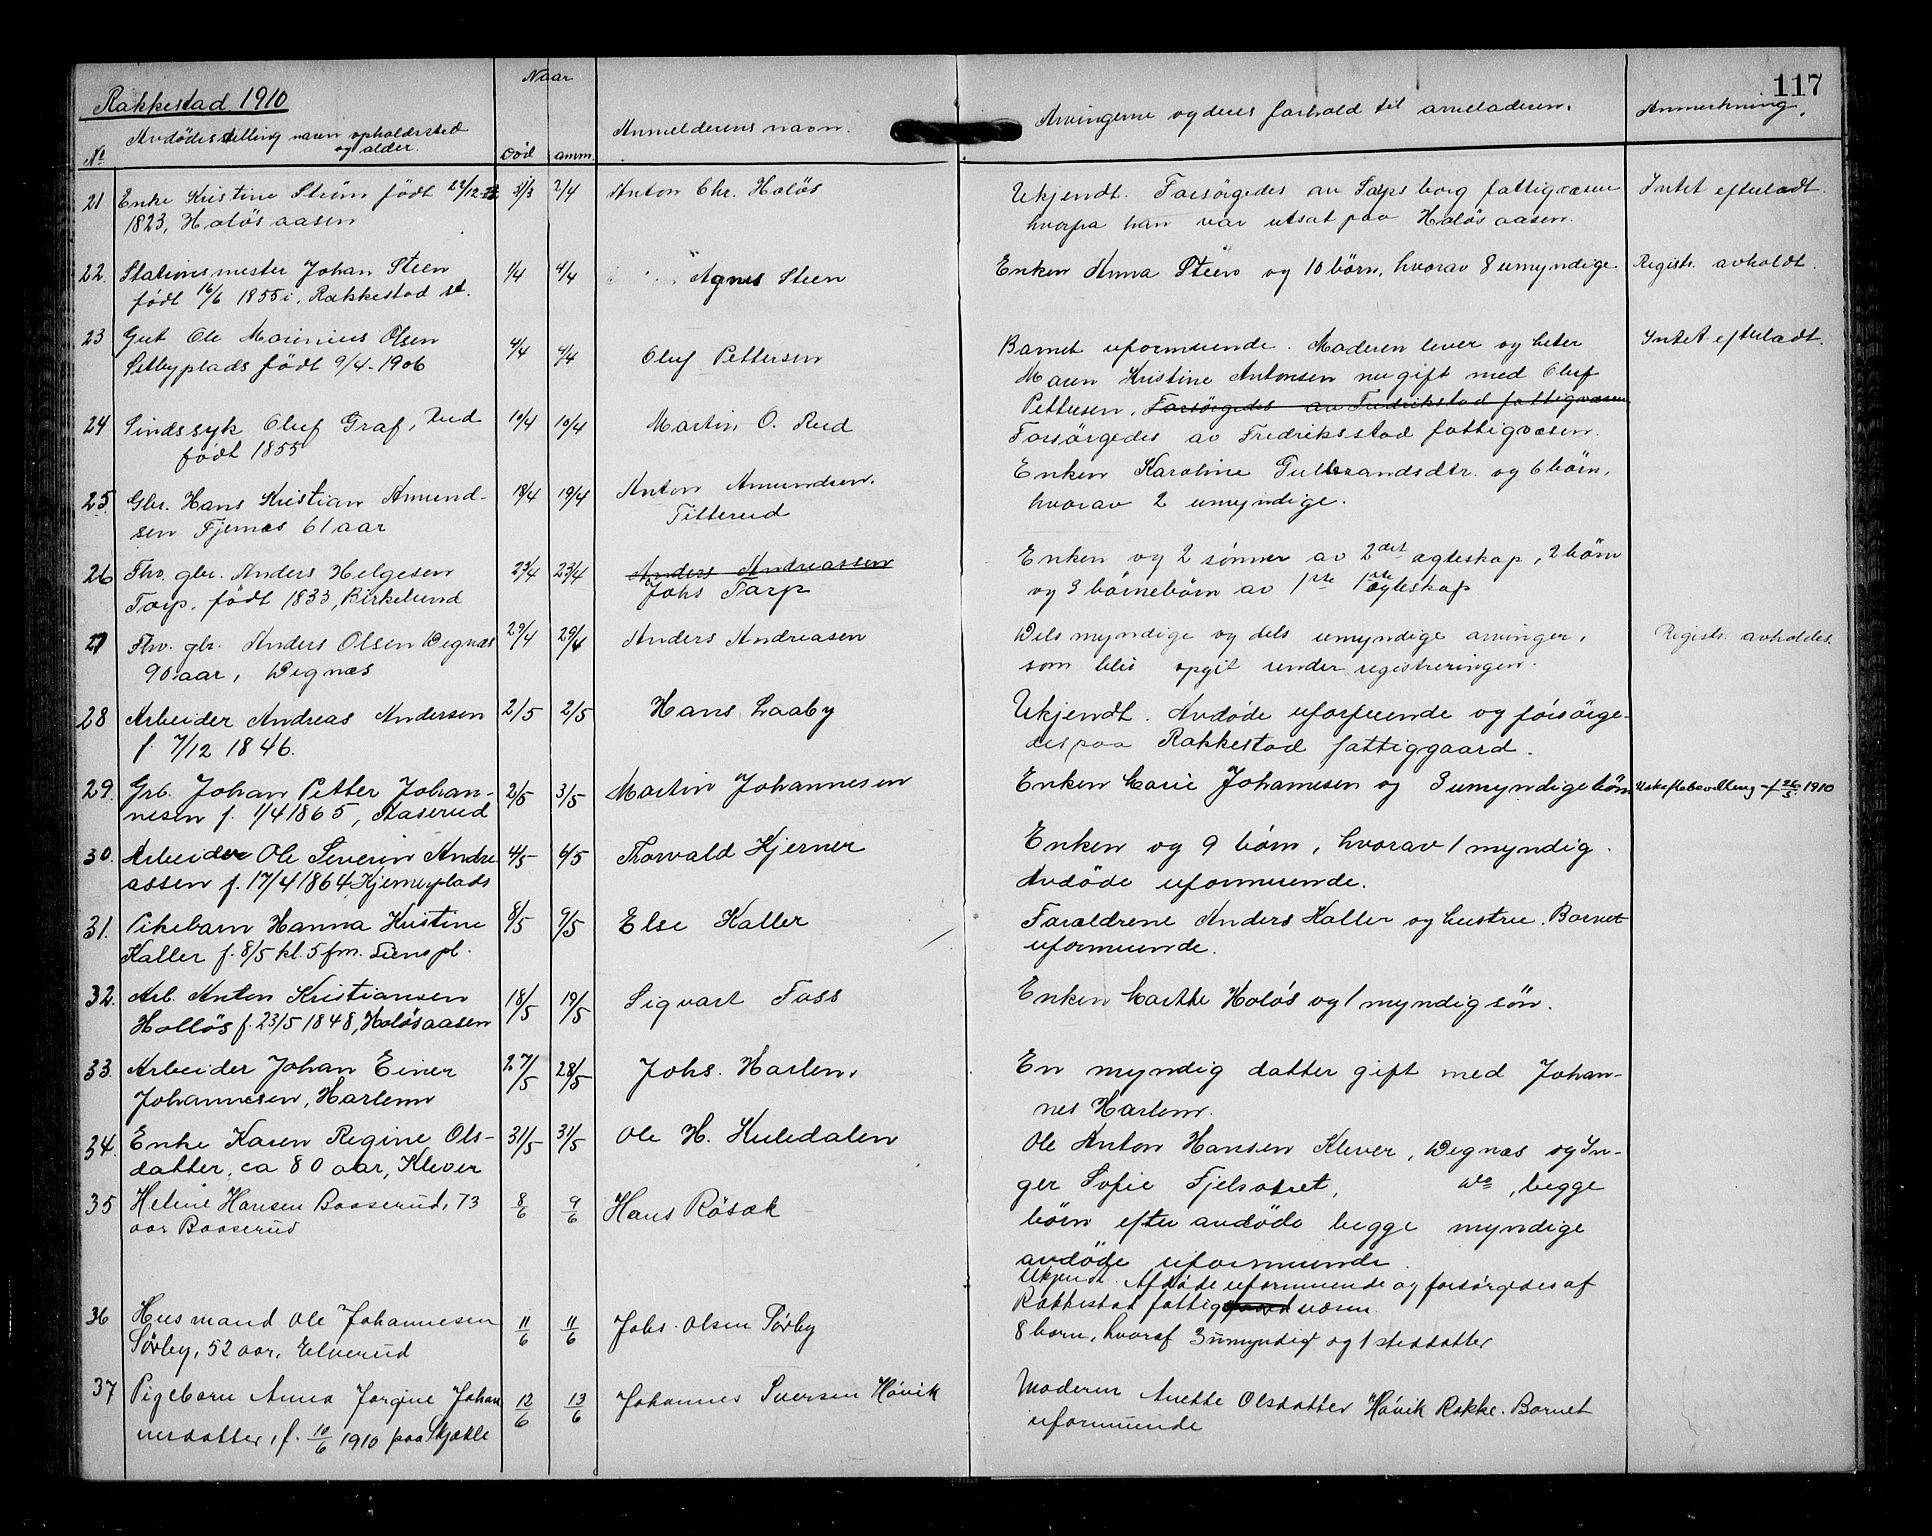 117
Rakkestad 1910
Naar
No
Avdödes stilling navn opholdssted
og alder.
död
anm.
Anmelderens navn.
Arvingerne og deres forhold til arveladeren.
Anmerkning.
21 Enke Kristine Steen födt 22/12
1823, Holös aasen
31/3 2/4 Anton Chr. Holös
Ukjendt. Forsörgedes av Sarpsborg fattigvæsen
hvorfra han var utsat paa Holös aasen.
Intet efterladt.
22. Stationsmester Johan Steen
födt 16/6 1855 i Rakkestad st.
1/4 4/4 Agnes Steen
Enken Anna Steen og 10 börn, hvorav 8 umyndige.
Registr. avholdt.
23 Gut Ole Marinius Olsen
födt 9/4-1906
4/4 4/4 Oluf Pettersen
Barnet uformuende. Moderen lever og heter
Maren Kristine Antonsen nu gift med Oluf
Pettersen. Forsörgedes av Fredrikstad fattigvæsen
Forsörgedes av Fredriksstad fattigvæsen.
Intet efterladt.
24 Sindssyk Oluf Graf, Rud
födt 1855
10/4 10/4 Martin O. Rud
25. Gbr. Hans Kristian Amund-
sen Fjernes 61 aar
18/4 19/4 Anton Amundsen.
Titterud
Enken Karoline Gulbrandsdtr. og 6 börn,
hvorav 2 umyndige.
26 Fhv. gbr. Anders Helgesen
Torp. födt 1833, Birkelund
23/4 23/4 Anders Andreassen
Johs Torp
Enken og 2 sönner av 2det egteskap, 2 börn
og 3 börnebörn av 1ste egteskap
27 Fhv. gbr. Anders Olsen Degnæs
90 aar, Degnæs
29/4 29/4 Anders Andreasen
Dels myndige og dels umyndige arvinger,
som blir opgit under registreringen.
Registr. avholdes.
28 Arbeider Andreas Andersen
f. 7/12 1846.
2/5 2/5 Hans Laaby
Ukjendt. Avdöde uformuende og forsörge-
des paa Rakkestad fattiggaard.
29. Grb. Johan Petter Johan-
nesen f. 1/4 1865, Aaserud
2/5 3/5 Martin Johannesen
Enken Marie Johannesen og 3 umyndige börn
Uskiftebevilling f 26/5 1910
30. Arbeider Ole Severin Andre
assen f. 17/4 1864 Hjernerplads
4/5 6/5 Thorvald Hjerner
Enken og 9 börn, hvorav 1 myndig.
Avdöde uformuende.
31. Pikebarn Hanna Kristine
Kaller f. 8/5 kl. 5 fm.
8/5 9/5 Else Kaller
Forældrene Anders Kaller og hustru. Barnet
uformuende.
32. Arb. Anton Kristiansen
Hollös f. 23/5 1848, Holösaasen
18/5 19/5 Sigvart Foss
Enken Marthe Holös og 1 myndig sön.
33. Arbeider Johan Einer
Johannesen, Harlem
27/5 28/5 Johs. Harlem.
En myndig datter gift med Johan-
nes Harlem.
34. Enke Karen Regine Ols-
datter, ca 80 aar, Klever
31/5 31/5 Ole H. Kuledalen
Ole Anton Hansen Klever, Degnæs og In-
ger Sofie Fjelsætret, do, begge
börn efter avdöde begge myndige
avdöde uformuende.
35 Heline Hansen Baaserud, 73
aar Baaserud
8/6 9/6 Hans Rösæk
Ukjendt. Afdöde uformuende og forsörgedes af
Rakkestad fattigvæsen.
36 Husmand Ole Johannesen
Sörby, 52 aar, Elverud
11/6 11/6 Johs. Olsen Sörby
8 barn, hvoraf 3 umyndig og 1 steddatter
37 Pigebarn Anna Jorgine Johan
nesdatter, f. 10/6 1910 paa Skjække
12/6 13/6 Johannes Iversen Hövik
Moderen Anette Olsdatter Hövik Rakke. Barnet
uformuende